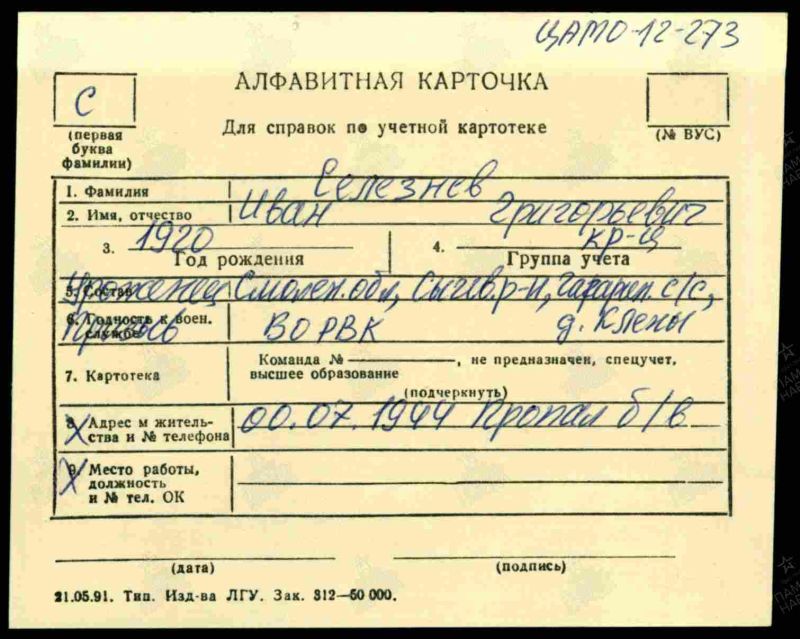 ЦАМО-12-273
АЛФАВИТНАЯ КАРТОЧКА
С
(первая
буква
фамилии)
Для справок по учетной картотеке
(№ ВУС)
1. Фамилия Селезнев
2. Имя, отчество Иван Григорьевич
3. 1920
Год рождения
4. кр-ц
Группа учета
5. Состав Уроженец Смолен. обл, Сычев. р-н, с/с,
6. Годность к воен. службе Призыв ВО РВК д. Клены
7. Картотека
Команда № , не предназначен, спецучет,
высшее образование
(подчеркнуть)
8. Адрес м житель-
ства и № телефона
00.07.1944 Пропал б/в
9. Место работы,
должность
и № тел. ОК
(дата) (подпись)
21.05.91. Тип. Изд-ва ЛГУ. Зак. 312—50 000.